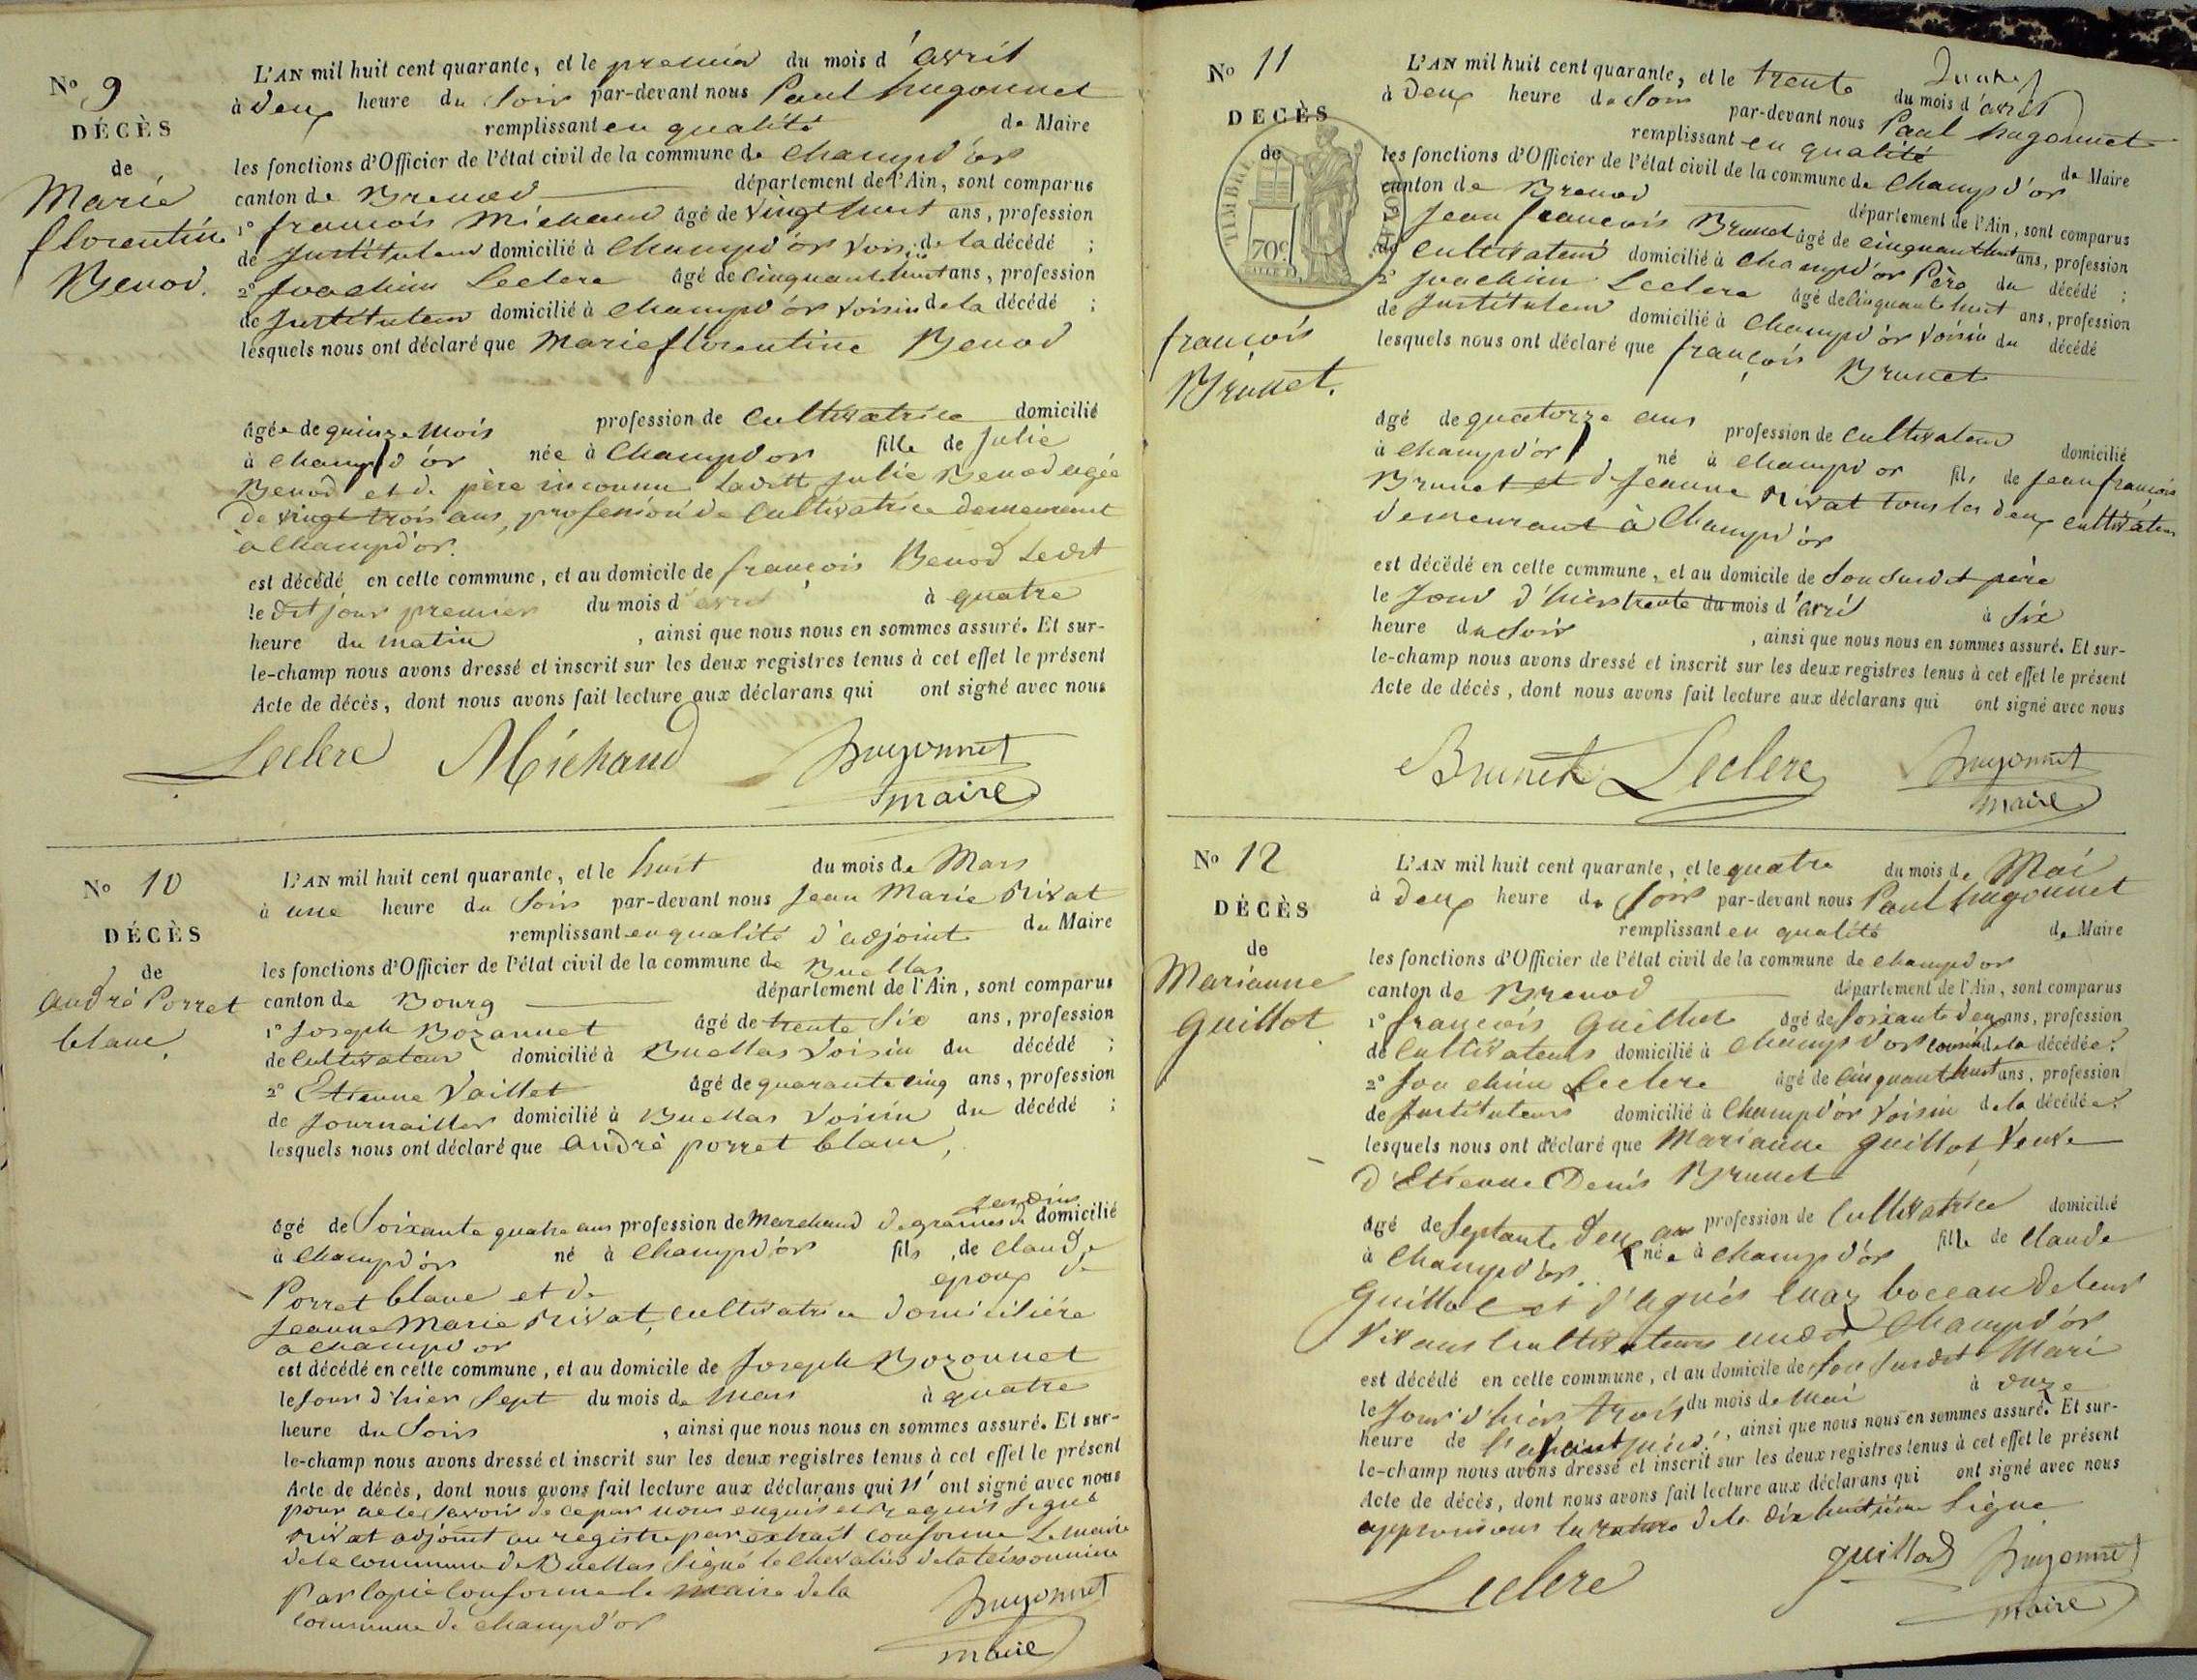 No 9
DÉCÈS
de
Marie
florentine
Benod.
L'AN mil huit cent quarante, et le premier du mois d'avril
à deux heure du Soir par-devant nous Paul hugonnet
remplissant en qualité de Maire
les fonctions d'Officier de l'état civil de la commune de Champd'or
canton de Brenod département de l'Ain, sont comparus
1° françois Michaud âgé de vingt huit ans, profession
de Instituteur domicilié à Champd'or voisin de la décédé ;
2° Joachim Leclere âgé de Cinquant huit ans, profession
de Instituteur domicilié à Champd'or voisin de la décédé ;
lesquels nous ont déclaré que Marie florentine Benod
âgée de quinze Mois profession de Cultivatrice domicilié
à Champd'or née à Champd'or fille de Julie
Benod et de père inconnu Laditte Julie Benod agée
de vingt trois ans, profession de Cultivatrice demeurant
à Champd'or.
est décédé en cette commune, et au domicile de françois Benod Ledit
le dit jour premier du mois d'avril à quatre
heure du matin , ainsi que nous nous en sommes assuré. Et sur-
le-champ nous avons dressé et inscrit sur les deux registres tenus à cet effet le présent
Acte de décès, dont nous avons fait lecture aux déclarans qui ont signé avec nous
Leclere Michaud hugonnet
maire
No 10
DÉCÈS
de
andrè Porret
blanc.
L'AN mil huit cent quarante, et le huit du mois de Mars
à une heure du Soir par-devant nous Jean Marie Nivat
remplissant en qualité d'adjoint du Maire
les fonctions d'Officier de l'état civil de la commune de Buellas
canton de Bourg département de l'Ain, sont comparus
1° Joseph Bozonnet âgé de trente Six ans, profession
de Cultivateur domicilié à Buellas voisin du décédé ;
2° Etienne Vaillet âgé de quarante cinq ans, profession
de Journailler domicilié à Buellas Voisin du décédé ;
lesquels nous ont déclaré que andrè porret blanc,
jardin
âgé de Soixante quatre ans profession de Marchand de graines de domicilié
à Champd'or né à Champd'or fils de Claude
Porret blanc et de époux de
Jeanne Marie Nivat, Cultivatrice domiciliére
à Champd'or
est décédé en cette commune, et au domicile de Joseph Bozonnet
le Jour d'hier Sept du mois de Mars à quatre
heure du Soir , ainsi que nous nous en sommes assuré. Et sur-
le-champ nous avons dressé et inscrit sur les deux registres tenus à cet effet le présent
Acte de décès, dont nous avons fait lecture aux déclarans qui n'ont signé avec nous
pour ne le Savoir de ce par nous enquis et requis Signé
Nivat adjoint au registre par extrait conforme Le maire
de la commune de Buellas Signé le Chevalier de la teissonniere
Par Copie Conforme le Maire de la
Commune de Champd'or
hugonnet
maire
No 11
DECÈS
de
TIMBRE ROYAL
70c
françois
Brunet.
L'AN mil huit cent quarante, et le trente
du mois d'avril
à deux heure du Soir par-devant nous Paul hugonnet
remplissant en qualité de Maire
les fonctions d'Officier de l'état civil de la commune de Champd'or
canton de Brenod département de l'Ain, sont comparus
Jean françois Brunet âgé de cinquant huit ans, profession
de Cultivateur domicilié à Champd'or Père du décédé ;
2° Joachim Leclere âgé de Cinquante huit ans, profession
de Instituteur domicilié à Champd'or Voisin du décédé
lesquels nous ont déclaré que françois Brunet
âgé de quatorze ans profession de Cultivateur domicilié
à Champd'or, né à Champd'or fils de Jean françois
Brunet et d Jeanne Nivat tous les deux cultivateur
demeurant à Champd'or
est décédé en cette commune, et au domicile de Son Susdit père
le Jour d'hier trente du mois d'avril à Six
heure du Soir , ainsi que nous nous en sommes assuré. Et sur-
le-champ nous avons dressé et inscrit sur les deux registres tenus à cet effet le présent
Acte de décès, dont nous avons fait lecture aux déclarans qui ont signé avec nous
Brunet Leclere hugonnet
maire
No 12
DÉCÈS
de
Marianne
Guillot.
L'AN mil huit cent quarante, et le quatre du mois de Mai
à deux heure du Soir par-devant nous Paul hugonnet
remplissant en qualité de Maire
les fonctions d'Officier de l'état civil de la commune de Champd'or
canton de Brenod département de l'Ain, sont comparus
1° françois Guillot âgé de Soixante deux ans, profession
de Cultivateur domicilié à Champd'or cousin de la décédée ;
2° Joachim Leclere âgé de Cinquant huit ans, profession
de Instituteur domicilié à Champd'or Voisin de la décédée ;
lesquels nous ont déclaré que Marianne Guillot, Veuve
d'Etienne Denis Brunet
âgé de Septante deux an profession de Cultivatrice domicilié
à Champd'or. née à Champd'or fille de Claude
Guillot et d'agnés boccan de leur
vivans Cultivateurs Champd'or
est décédé en cette commune, et au domicile de Son Susdit Mari
le Jour d'hier trois du mois de Mai à onze
heure de l'avant midi, ainsi que nous nous en sommes assuré. Et sur-
le-champ nous avons dressé et inscrit sur les deux registres tenus à cet effet le présent
Acte de décès, dont nous avons fait lecture aux déclarans qui ont signé avec nous
approuvons la rature de la dix huitième Ligne
Leclere guillot hugonnet
maire